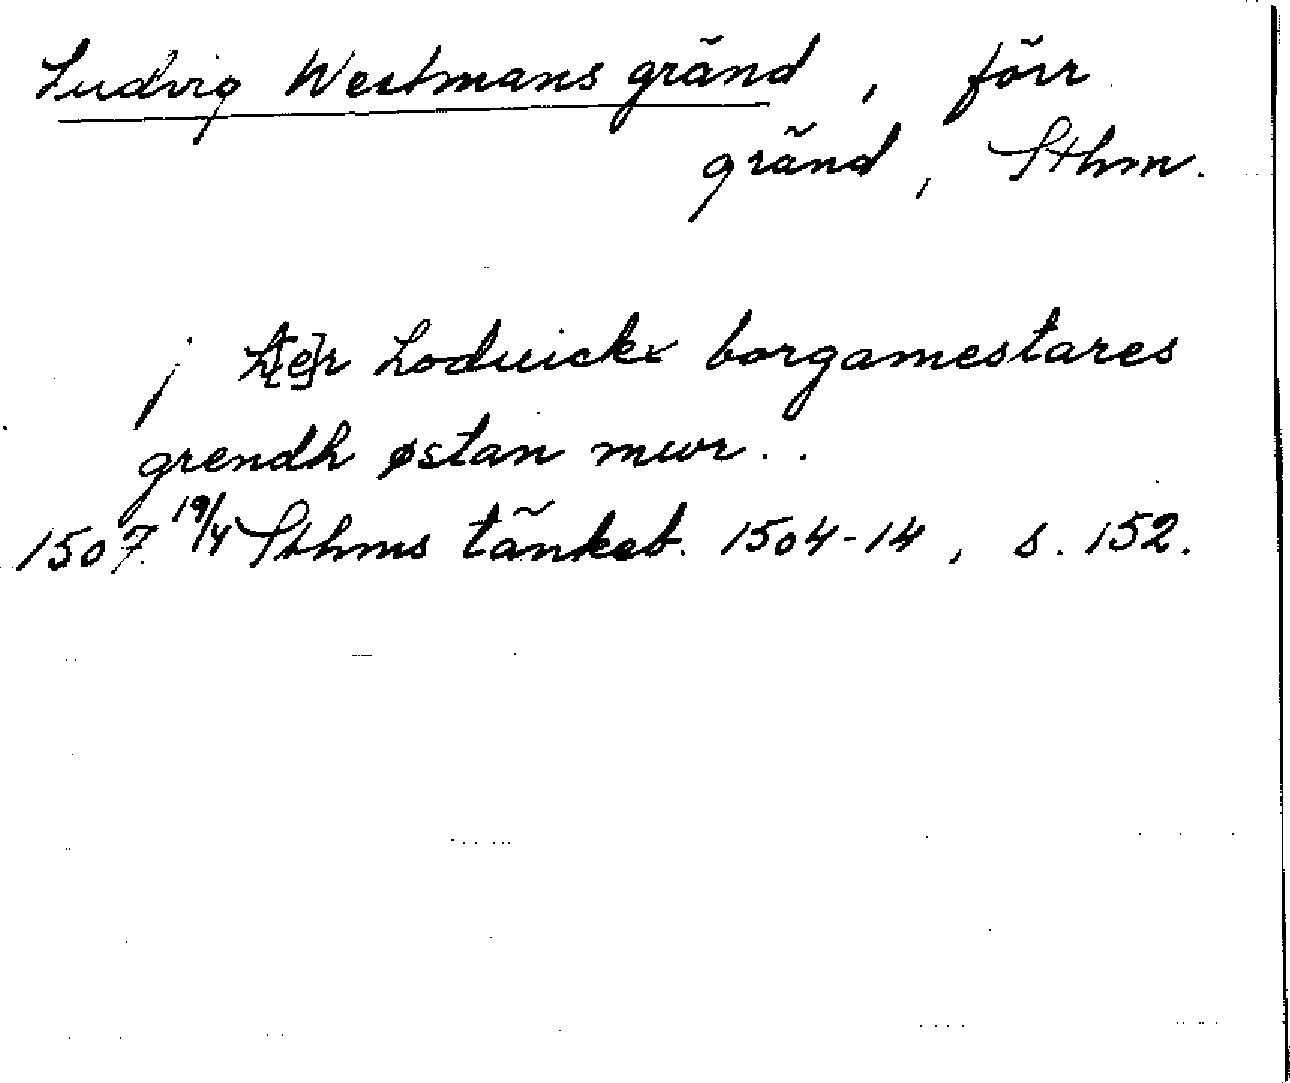 Ludvig Westmans gränd, förr
gränd, Sthm.
j h[e]r Loduicks borgamestares
grendh østan mwr..
1507 19/4 Sthms tänkeb. 1504-14, s. 152.